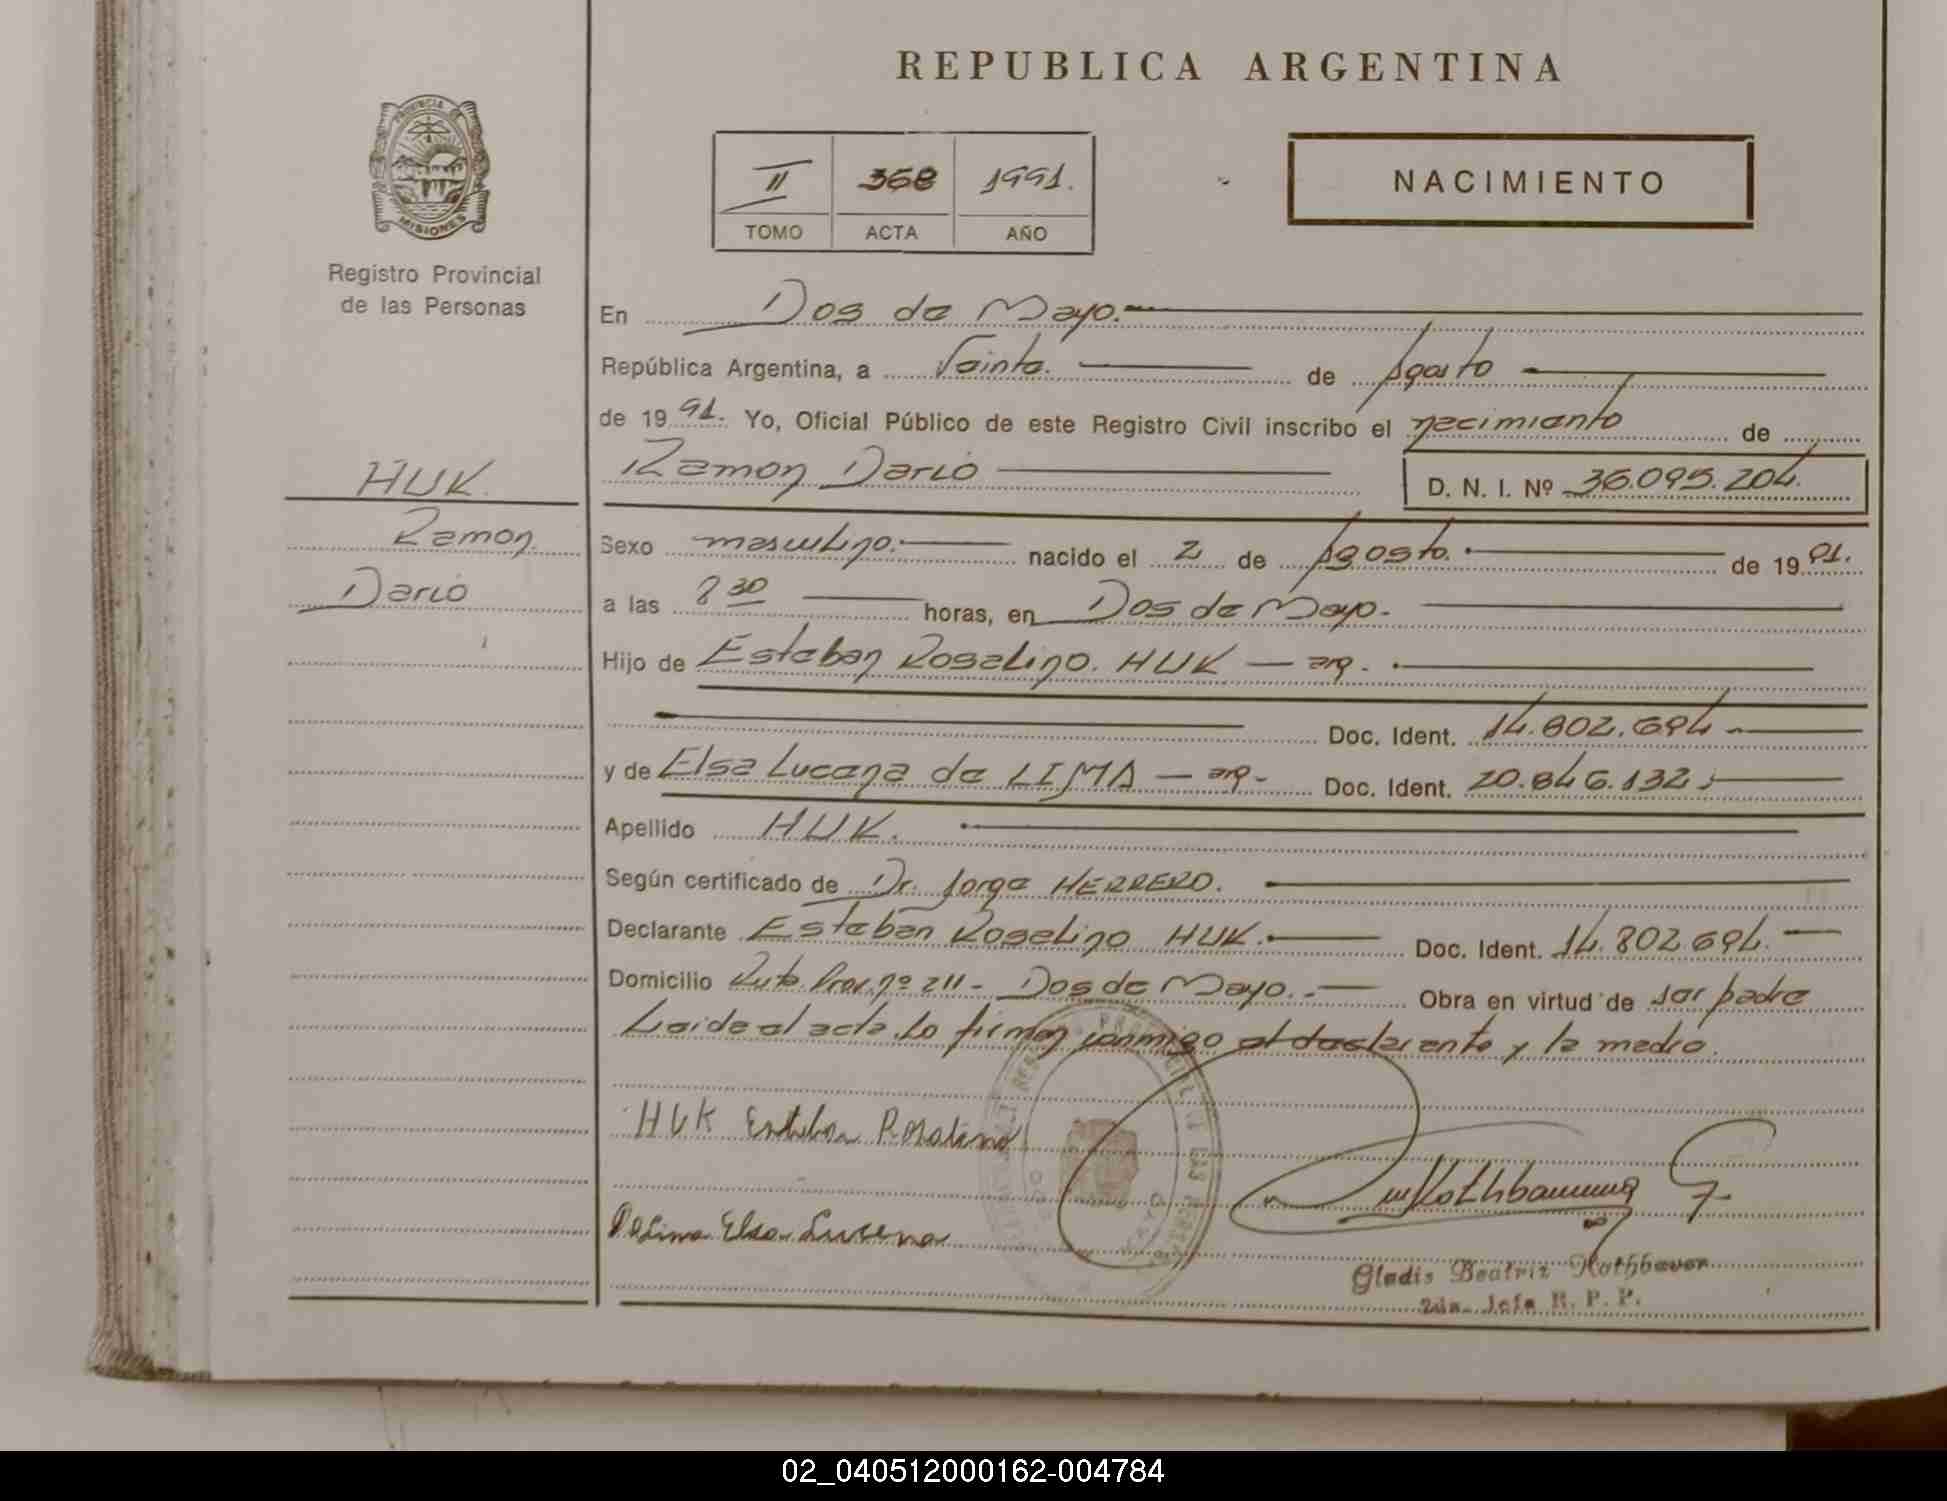 REPUBLICA ARGENTINA
PROVINCIA DE
MISIONES
Registro Provincial
de las Personas
II 368 1991.
TOMO ACTA AÑO
NACIMIENTO
En Dos de Mayo.
República Argentina, a Veinte. de Agosto
de 1991. Yo, Oficial Público de este Registro Civil inscribo el nacimiento de
HUK.
Ramon Dario
D. N. I. Nº 36.095.204.
Ramon
Dario
Sexo masculino. nacido el 2 de Agosto. de 1991.
a las 8 30 horas, en Dos de Mayo.
Hijo de Esteban Rosalino. HUK — arg.
Doc. Ident. 14.802.694
y de Elsa Lucena de LIMA — arg. Doc. Ident. 20.846.132
Apellido HUK.
Según certificado de Dr. Jorge HERRERO.
Declarante Esteban Rosalino HUK. Doc. Ident. 14.802.694.
Domicilio Ruta Prov. nº 211 - Dos de Mayo. Obra en virtud de ser padre
Leida el acta. Lo firman conmigo el declarante y la madre.
HUK Esteban Rosalino
De Lima Elsa Lucena
Gladis Beatriz Rothbauer
2da. Jefa R. P. P.
02_040512000162-004784